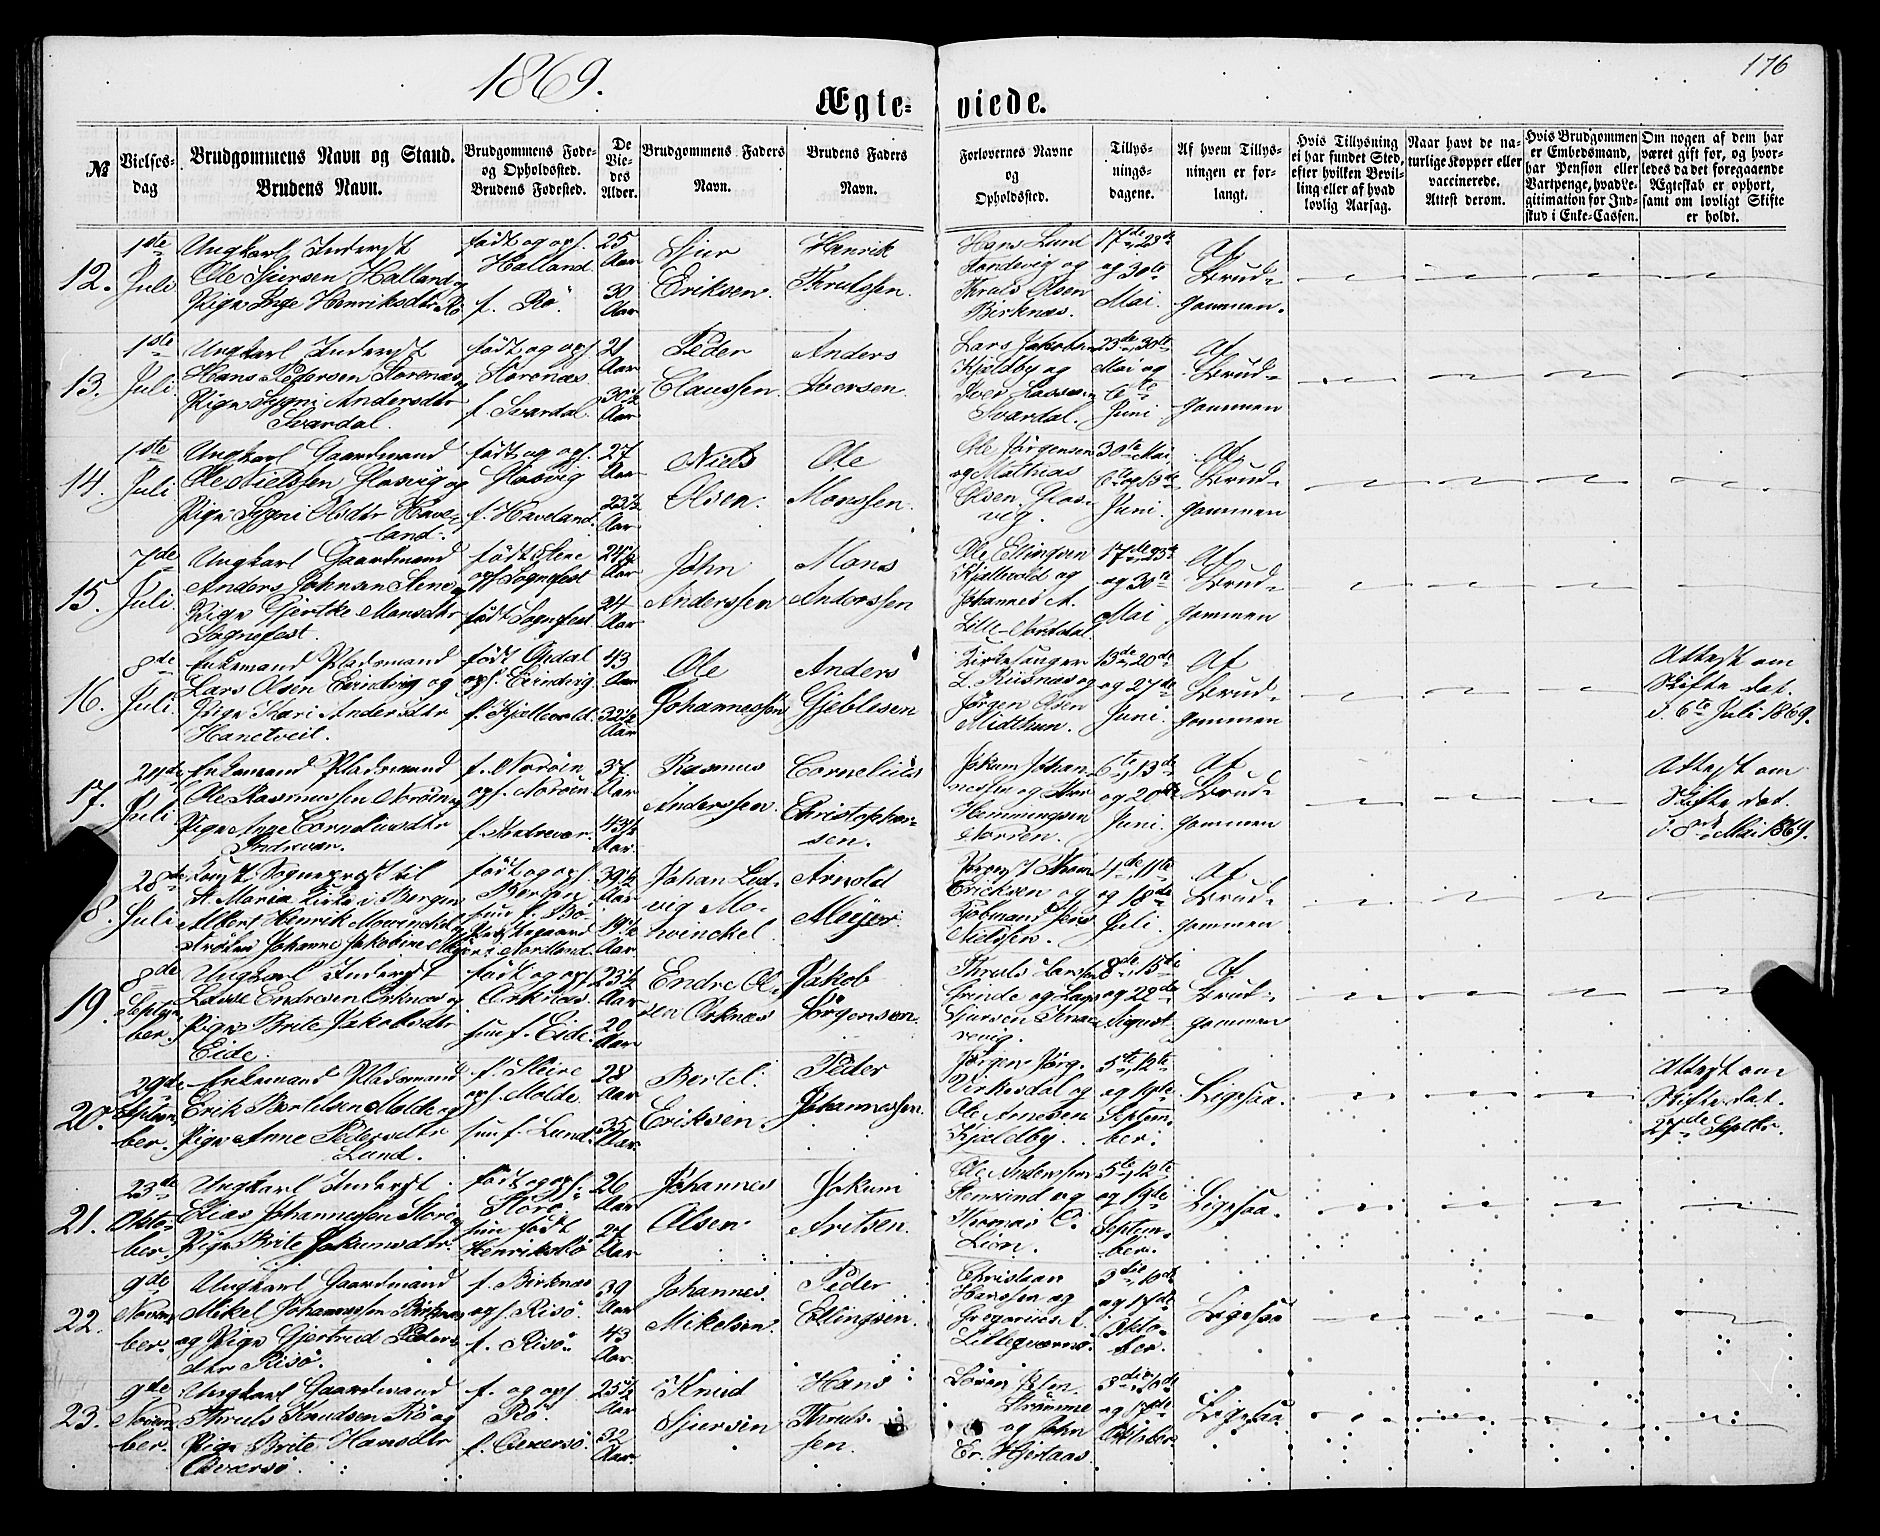 1869.
176
Ægte-
viede.
№
Vielses-
dag
Brudgommens Navn og Stand.
Brudens Navn.
Brudgommens Føde-
og Opholdssted.
Brudens Fødested.
De
Vie-
des
Alder.
Brudgommens Faders
Navn.
Brudens Faders
Navn.
Forlovernes Navne
og
Opholdssted.
Tillys-
nings-
dagene.
Af hvem Tillys-
ningen er for-
langt.
Hvis Tillysning
ei har fundet Sted,
efter hvilken Bevil-
ling eller af hvad
lovlig Aarsag.
Naar havt de na-
turlige Kopper eller
vaccinerede.
Attest derom.
Hvis Brudgommen
er Embedsmand,
har Pension eller
Vartpenge, hvad Le-
gitimation for Ind-
skud i Enke-Cassen.
Om nogen af dem har
været gift før, og hvor-
ledes da det foregaaende
Ægteskab er ophørt,
samt om lovligt Skifte
er holdt.
12.
1ste
Juli
Ungkarl Inderst
Ole Sjursen Halland og
Pige Inge Henriksdtr Rö
født og opf.
Halland.
f. Rö.
25
Aar
30
Aar
Sjur
Eriksen.
Henrik
Thrulssen.
Hans Lund
Tandevig og
Thruls Olsen
Birknæs.
17de, 23de
og 30te
Mai.
Af
Brud-
gommen.
13.
1ste
Juli.
Ungkarl Inderst
Hans Pedersen Storenæs og
Pige Sygni Andersdtr
Svardal.
født og opf
Storenæs.
f. Svardal.
21
Aar
30½
Aar
Peder
Claussen.
Anders
Iversen.
Lars Jakobsen
Kjeldby og
Iver Lassesen
Svardal.
23de, 30te
Mai og
6te
Juni
Af
Brud-
gommen
14.
1ste
Juli
Ungkarl Gaardmand
Ole Nielssen Glasvig og
Pige Sygni Olsdtr Have-
land.
født og opf.
Glasvig
f. Haveland.
27
Aar
23½
Aar
Niels
Olsen.
Ole
Monssen.
Ole Jørgensen
og Mathias
Olsen Glas-
vig.
30te Mai
6te og 13de
Juni.
Af
Brud-
gommen
15.
7de
Juli.
Ungkarl Gaardmand
Anders Johnsen Stene og
Pige Gjertke Monsdtr
Sognefest.
født Stene
opf. Sognefest
født Sognefest
24½
Aar
24
Aar
John
Anderssen
Mons
Anderssen
Ole Ellingsen
Kjellevold og
Johannes A.
Lille-Nordal.
17de, 23de
og 30te
Mai
Af
Brud-
gommen
16.
8de
Juli.
Enkemand Pladsmand
Lars Olsen Evindvig og
Pige Kari Andersdtr
Hanetveit.
født Opdal
opf. Evindvig.
f. Kjellevold.
43
Aar
32½
Aar
Ole
Johannessen
Anders
Gjeblesen
Kirkesanger
L. Risnæs og
Jörgen Olsen
Midtthun.
13de, 20de
og 27de
Juni
Af
Brud-
gommen
Attest om
Skifte dat.
d. 6te Juli 1869.
17.
Juli.
Enkemand Pladsmand
Ole Rasmussen Nordöen og
Pige Anne Corneliusdtr
Indrevær.
f. Nordöen
opf. Nordöen.
f. Indrevær.
37.
Aar
43½
Aar.
Rasmus
Anderssen.
Cornelius
Christophers-
sen.
Jakum Johan-
nessen og
Hemmingsen
6te, 13de
og 20de
Juni.
Af
Brud-
gommen
Attest om
Skifte dat.
d. 8de Mai 1869.
8.
28de
Juli
Const. Sogneprest til
St. Maria Kirke i Bergen
Albert Henrik Mowinckel og
Frøken Johanne Jakobine Meijer
født og opf
Bergen
hun f. Bö-
Præstegaard
i Nordland.
39½
Aar
19½
Aar.
Johan Lud-
vig Mo-
winckel.
Arnold
Meijer.
Ericksen og
Kjøbmand Jens
Nielssen.
4de, 11te
og 18de
Juli.
Af
Brud-
gommen
19.
8de
Septem-
ber.
Ungkarl Inderst
Lasse Endresen Ørknæs og
Pige Brite Jakobsdtr
Eide.
født og opf
Ørknæs.
hun f. Eide.
23½
Aar
20
Aar
Endre Ol-
sen Ørknæs
Jakob
Jørgensen.
Thruls Larssen
Grinde og Lars
Sjursen
8de, 15de
og 22de
August.
Af
Brud-
gommen
20.
29de
Septem-
ber.
Enkemand Pladsmand
Erik Bertelsen Molde og
Pige Anne Pedersdtr
Lund.
f. Steire
opf. Molde.
hun f. Lund.
28
Aar.
35
Aar.
Bertel.
Eriksen.
Peder
Johannessen.
Jørgen Jørg.
Virkesdal og
Ole Arnesen
Kjeldby.
5te, 12te
og 19de
Septem-
ber.
Ligesaa.
Attest om
Skifte dat.
27de Septbr.
21.
23de
Okto-
ber.
Ungkarl Inderst
Elias Johannessen Storö og
Pige Brite Jakumsdtr.
født og opf.
Storö.
hun født
Henriksbö
26
Aar
24
Aar
Johannes
Olsen.
Jakum
Aretsen.
Ole Anderssen
og
Thomas O.
Lien.
5te, 12te
og 19de
Septem-
ber.
Ligesaa.
22.
9de
Novem-
ber.
Ungkarl Gaardmand
Mikel Johannessen Birknæs
og Pige Gjertrud Peders-
dtr Risö.
f. Birknæs
opf. Risö.
f. Risö.
39
Aar
43
Aar.
Johannes.
Mikelsen.
Peder
Ellingsen.
Christian
Hanssen og
Gregorius L.
3die, 10de
og 17de
Okto-
ber.
Ligesaa
23.
9de
Novem-
ber.
Ungkarl Gaardmand
Thruls Knudsen Rö og
Pige Brite Hansdtr
Qværsö.
f. og opf
Rö.
f. Qværsö.
25½
Aar
32
Aar.
Knud
Sjursen
Hans
Thruls-
sen.
og John
Er. Hjertaas
3die, 10de
og 17de
Oktober
Ligesaa.